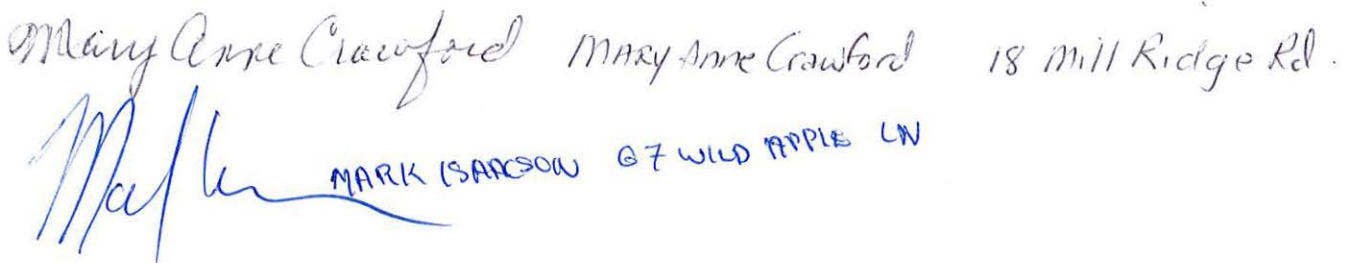 Mary Anne Crawford MARY Anne Crawford 18 Mill Ridge Rd.
MARK ISAACSON 67 WILD APPLE LN